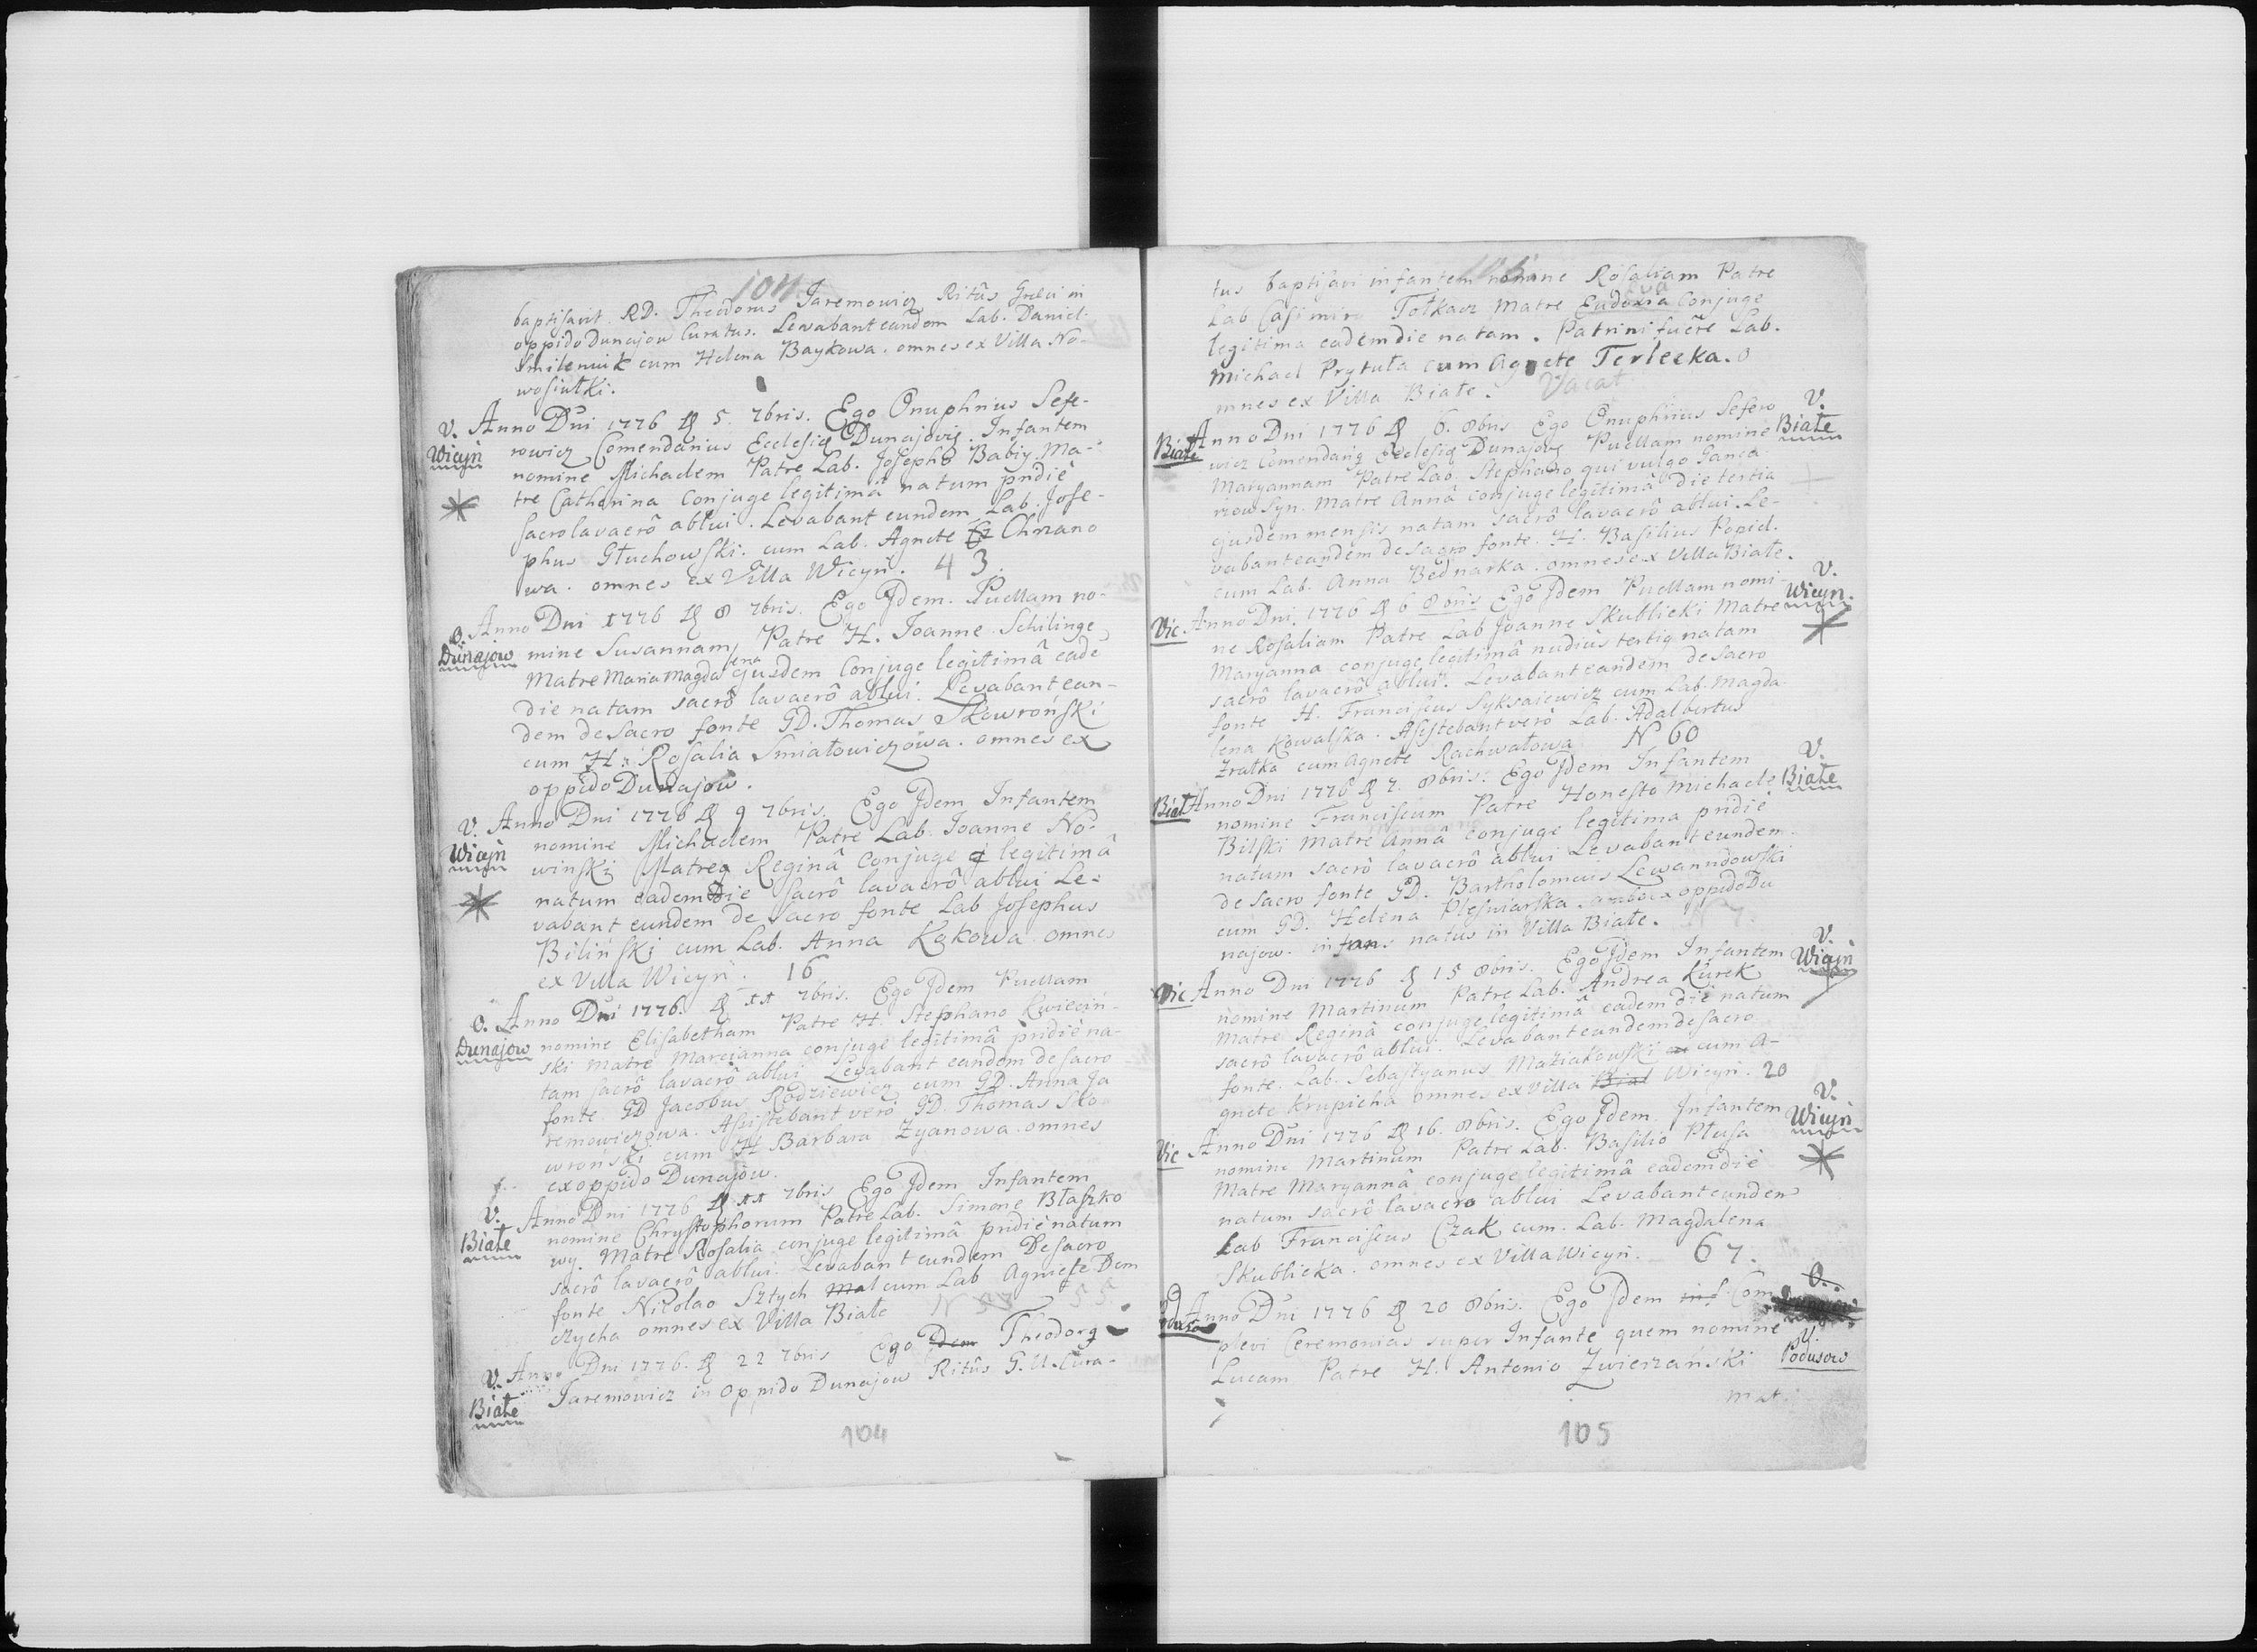 104
baptisavit RD. Theodorus Jaremowicz Ritûs Græci in
oppido Dunajow Curatus. Levabant eundem Lab. Daniel
Smileniuk cum Helena Baykowa. omnes ex Villa No-
wosiułki.
V. Anno Dni 1776 d 5. 7bris. Ego Onuphrius Sefe-
Wicyń rowicz Comendarius Ecclesiæ Dunajoviς. Infantem
nomine Michaelem Patre Lab. Josepho Babiy Ma-
tre Catherina Conjuge legitimâ natum pridiè
sacro lavacrô ablui. Levabant eundem Lab. Jose-
phus Głuchowski. cum Lab. Agnete Chrzano
wa. omnes ex Villa Wicyń. 43.
O. Anno Dni 1776 d 8 7bris. Ego Jdem. Puellam no-
Dunajow mine Susannam, Patre H. Joanne Schilinge
Matre Maria Magdalena ejusdem Conjuge legitimâ eadē
die natam sacrô lavacrô ablui. Levabant ean-
dem de sacro fonte GD. Thomas Skowroński
cum H. Rosalia Smiałowiczowa. omnes ex
oppido Dunajow.
V. Anno Dni 1776 d 9 7bris. Ego Jdem Infantem
Wicyń nomine Michaelem Patre Lab. Joanne No-
winski Matre Reginâ Conjuge legitimâ
natum eadem Die sacrô lavacrô ablui Le-
vabant eundem de sacro fonte Lab Josephus
Biliński cum Lab. Anna Kąkowa omnes
ex Villa Wicyń. 16
O. Anno Dni 1776. d 11 7bris. Ego Jdem Puellam
Dunajow nomine Elisabetham Patre H. Stephano Kwieciń-
ski Matre Marcianna conjuge legitimâ pridiè na-
tam sacrô lavacrô ablui Levabant eandem de sacro
fonte GD Jacobus Rodziewicz cum GD. Anna Ja
remowiczowa. Assistebant verò GD. Thomas Sko-
wroński cum H Barbara Zyanowa omnes
ex oppido Dunajow.
V. Anno Dni 1776 d 11 7bris Ego Jdem Infantem
Białe nomine Chrystophorum Patre Lab. Simone Błaszko
wy. Matre Rosalia conjuge legitimâ pridiè natum
sacrô lavacrô ablui. Levabant eundem De sacro
fonte Nicolao Sztych Mal cum Lab Agniete Dem
czycha omnes ex Villa Białe N 55
V. Anno Dni 1776. d 22 7bris Ego Dem Theodorς
Białe Jaremowicz in oppido Dunajow Ritûs G. U. Cura-
104
tus baptisavi infantem nomine Rosaliam Patre
Lab Casimiro Tołkacz Matre Eudoxia Eva Conjuge
legitima eadem die natam. Patrini fuêre Lab.
Michael Prytuła cum Agnete Terlecka. o
mnes ex Villa Białe. Vacat
Białe Anno Dni 1776 d 6. 8bris Ego Onuphrius Sefero V. Białe
wicz Comendariς Ecclesiæ Dunajoviς Puellam nomine
Maryannam Patre Lab. Stephano qui vulgo Ganca
rzow Syn. Matre Annâ conjuge legitimâ Die tertia
ejusdem mensis natam sacrô lavacrô ablui. Le-
vabant eandem de sacro fonte. H. Basilius Popiel.
cum Lab. Anna Bednarka. omnes ex Villa Białe.
Vic Anno Dni. 1776 d 6 8bris Ego Jdem Puellam nomi- V. Wicyń.
ne Rosaliam Patre Lab Joanne Skublicki Matre
Maryanna conjuge legitimâ nudiùs tertiς natam
sacrô lavacrô ablui. Levabant eandem de sacro
fonte H. Franciscus Syksaiewicz cum Lab. Magda
lena Kowalska. Assistebant verò Lab. Adalbertus
Zratka cum Agnete Rachwałowa N 60
Biał Anno Dni 1776 d 7. 8bris. Ego Jdem Infantem V. Białe
nomine Franciscum Patre Honesto Michaele
Bilski Matre Annâ conjuge legitima pridiè
natum sacrô lavacrô ablui Levabant eundem
de sacro fonte GD. Bartholomeus Lewanndowski
cum GD. Helena Plesniarska. ambo ex oppido Du
najow. infans natus in Villa Białe.
Vic Anno Dni 1776 d 15 8bris. Ego Jdem Infantem V. Wicyń
nomine Martinum Patre Lab. Andrea Kurek
Matre Reginâ conjuge legitimâ eadem die natum
sacrô lavacrô ablui. Levabant eundem de sacro
fonte. Lab. Sebastyanus Maziakowski cum A-
gnete Krupicha omnes ex Villa Bial Wicyń. 20
Vic Anno Dni 1776 d 16. 8bris. Ego Jdem. Infantem V. Wicyń
nomine Martinum Patre Lab. Basilio Płusa
Matre Maryannâ conjuge legitimâ eadem diè
natum sacrô lavacro ablui Levabant eundem
Lab Franciscus Czak cum. Lab. Magdalena
Skublicka. omnes ex Villa Wicyń. 67.
Anno Dni 1776 d 20 8bris. Ego Jdem inf Com O.
plevi Ceremonias super Infante quem nomine V.
Lucam Patre H. Antonio Zwierzański Podusow
mat.
105